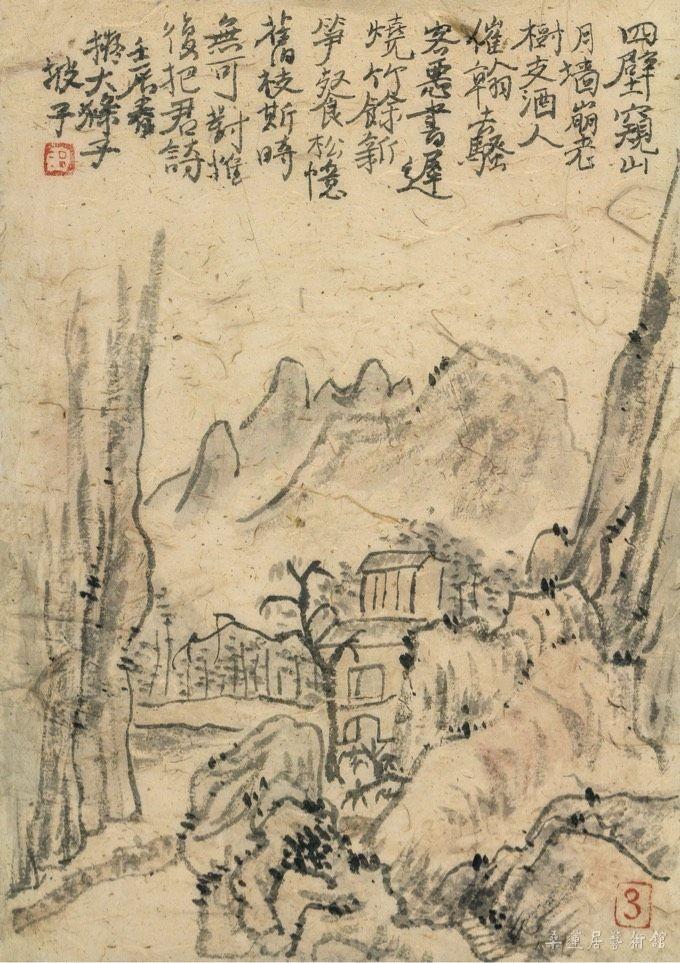 四壁窺山
月墙崩老
樹支酒人
催翰去騷
客惡書遲
燒竹餘新
筍餐松憶
舊枝斯時
無可對惟
復把君詩
壬辰春
擬大滌子
子
3
桑蓮居藝術館